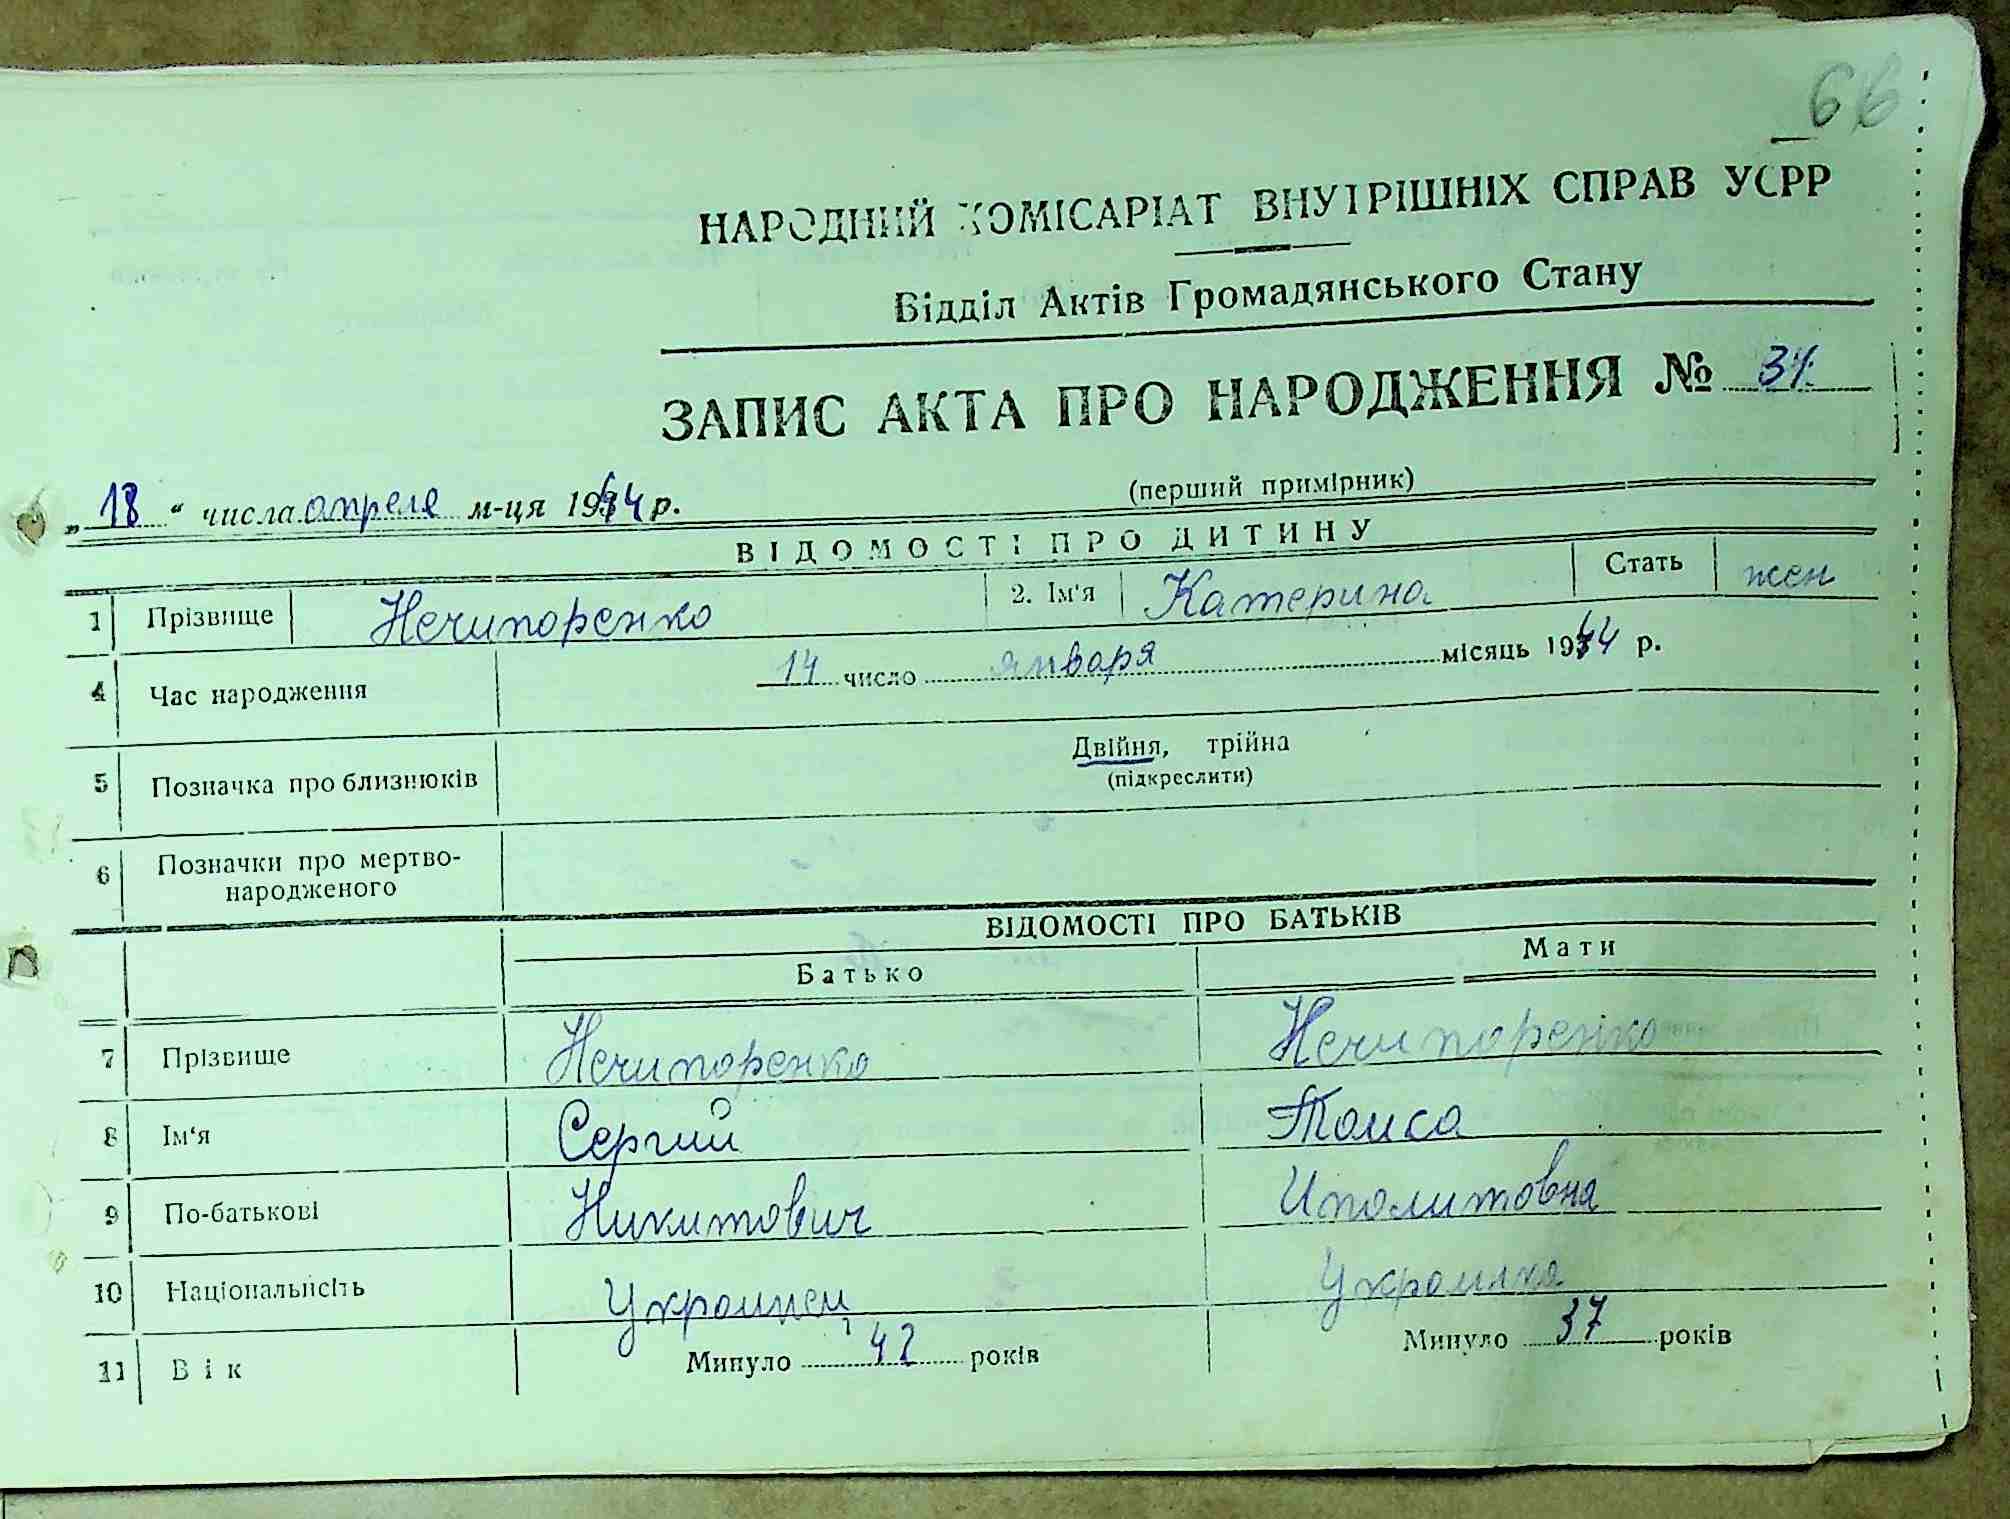 66
НАРОДНИЙ КОМІСАРІАТ ВНУТРІШНІХ СПРАВ УСРР
Відділ Актів Громадянського Стану
ЗАПИС АКТА ПРО НАРОДЖЕННЯ №
„ 18 “ числа апреля м-ця 1944 р.
(перший примірник)
ВІДОМОСТІ ПРО ДИТИНУ
1 Прізвище Нечипоренко 2. Ім'я Катерина Стать жен
4 Час народження 14 число января місяць 1944 р.
5 Позначка про близнюків Двійня, трійна
(підкреслити)
6 Позначки про мертво-
народженого
ВІДОМОСТІ ПРО БАТЬКІВ
Батько Мати
7 Прізвище Нечипоренко Нечипоренко
8 Ім'я Сергий Таиса
9 По-батькові Никитович Иполитовна
10 Національність Украинец Украинка
11 Вік Минуло 42 років Минуло 37 років